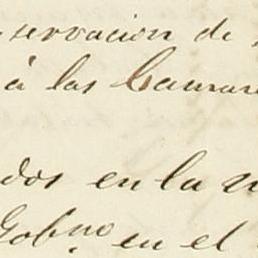 servacion de
à las Camar
dos en la
Gobno. en el